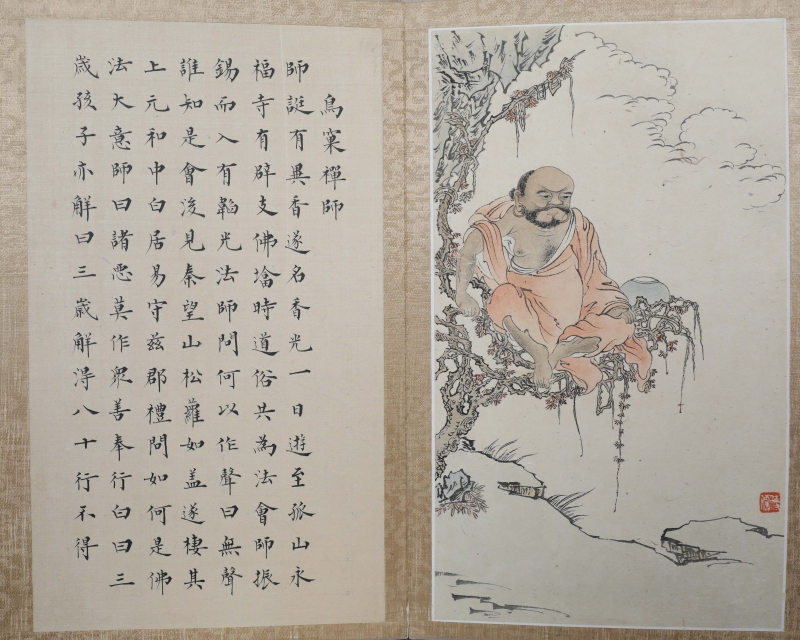 鳥窠禪師
師誕有異香遂名香光一日遊至孤山永
福寺有辟支佛塔時道俗共為法會師振
錫而入有韜光法師問何以作聲曰無聲
誰知是會後見秦望山松蘿如盖遂棲其
上元和中白居易守茲郡禮問如何是佛
法大意師曰諸惡莫作眾善奉行白曰三
歲孩子亦解曰三歲解得八十行不得